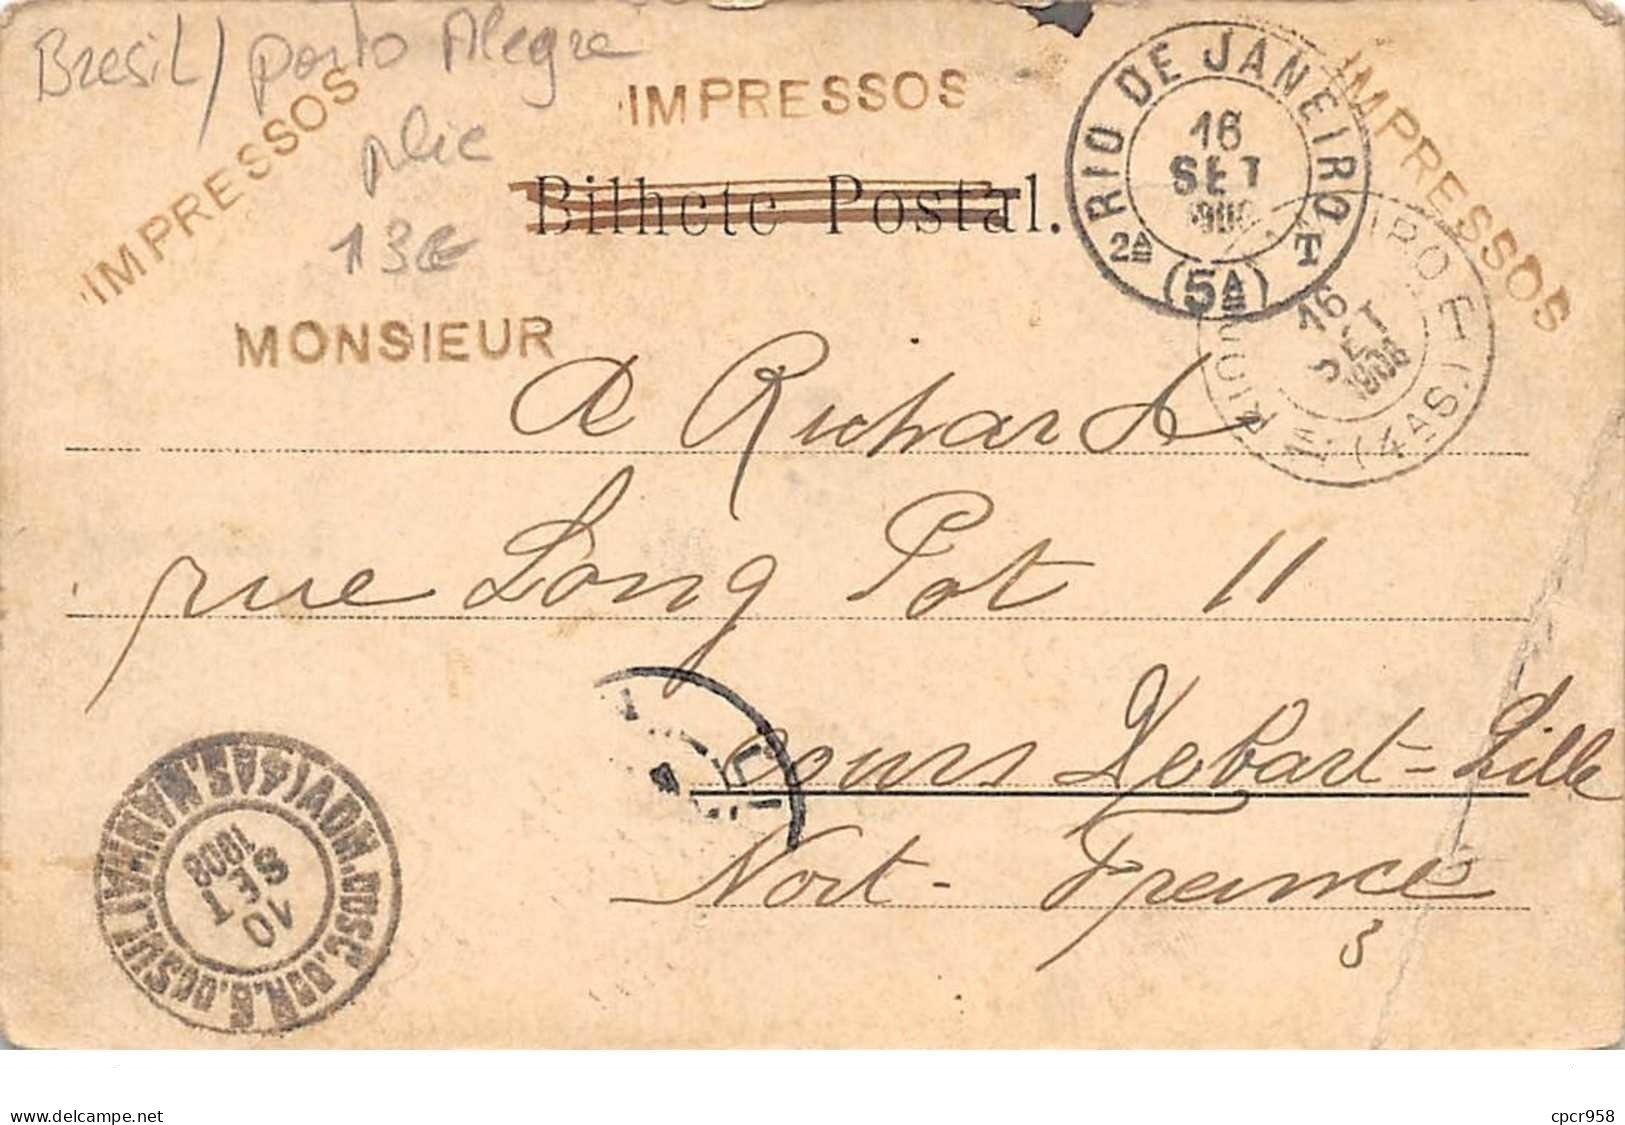 Bresil / porto Alegre
plie
13€
IMPRESSOS
IMPRESSOS
IMPRESSOS
Bilhete Postal.
RIO DE JANEIRO
16
SET
2ª (5ª) T
16
SET
1908
1ª (4ª S) T
MONSIEUR
A Richard
rue Long Pot 11
cours Debart - Lille
Nort - France
3
10
SET
1908
www.delcampe.net
cpcr958